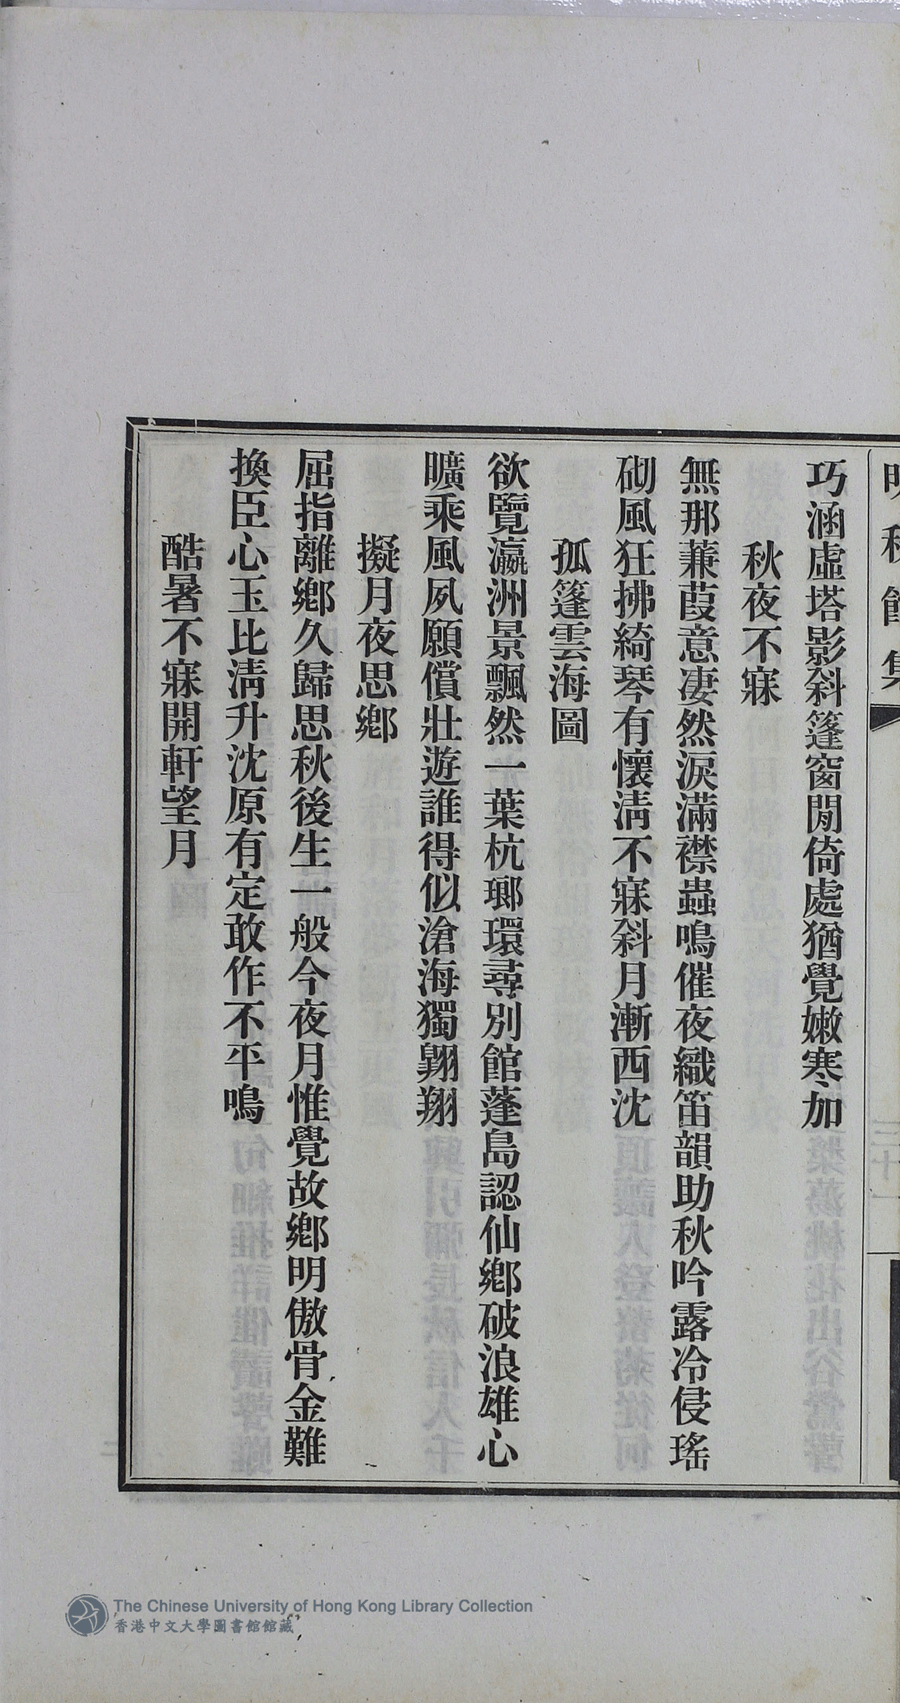 巧涵虛塔影斜篷窗閒倚處猶覺嫩寒加
秋夜不寐
無那蒹葭意凄然淚滿襟蟲鳴催夜織笛韻助秋吟露冷侵瑤
砌風狂拂綺琴有懷淸不寐斜月漸西沈
孤篷雲海圖
欲覽瀛洲景飄然一葉杭瑯環尋別館蓬島認仙鄕破浪雄心
曠乘風夙願償壯遊誰得似滄海獨翺翔
擬月夜思鄕
屈指離鄕久歸思秋後生一般今夜月惟覺故鄕明傲骨金難
換臣心玉比淸升沈原有定敢作不平鳴
酷暑不寐開軒望月
The Chinese University of Hong Kong Library Collection
香港中文大學圖書館館藏